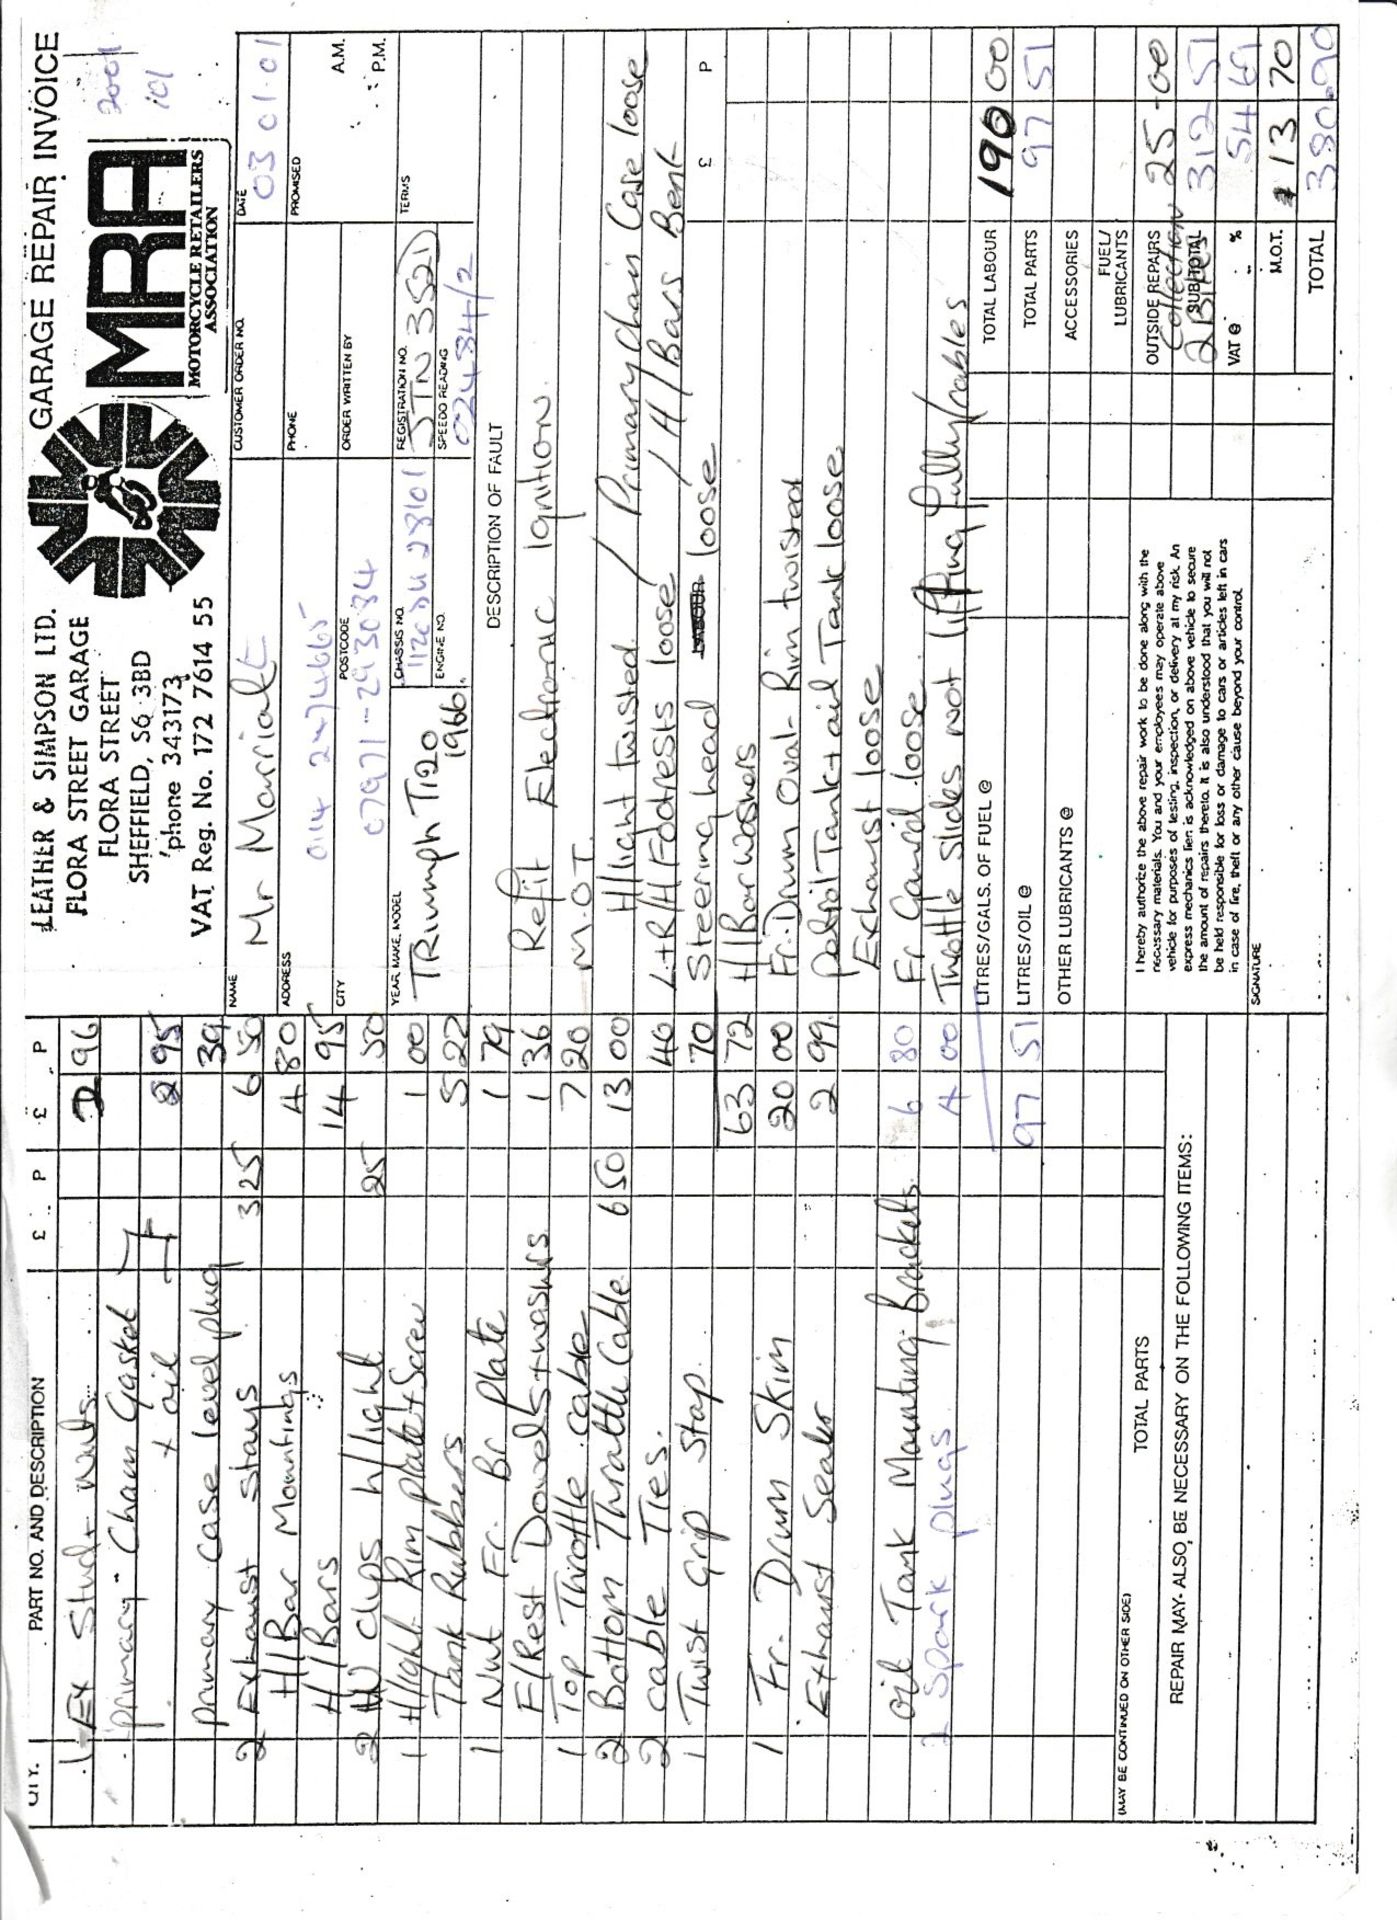 QTY. PART NO. AND DESCRIPTION £ P £ P
1 Ex Stud + Nuts 2 96
primary Chain Gasket
+ oil 2 95
primary case level plug 39
2 Exhaust stays 3 25 6 50
H/Bar Mountings 4 80
H/Bars 14 95
2 clips H/light 25 50
1 H/light Rim plate + Screw 1 00
Tank Rubbers 5 22
1 Nut Fr. Br Plate 1 79
F/Rest Dowels + washers 1 36
1 Top Throttle cable 7 20
2 Bottom Throttle Cable 6 50 13 00
2 cable Ties. 40
1 Twist Grip Stop. 70
63 72
1 Fr. Drum Skim 20 00
Exhaust Sealer 2 99
oil Tank Mounting Brackets. 6 80
2 Spark plugs 4 00
97 51
(MAY BE CONTINUED ON OTHER SIDE) TOTAL PARTS
REPAIR MAY ALSO, BE NECESSARY ON THE FOLLOWING ITEMS:
LEATHER & SIMPSON LTD.
FLORA STREET GARAGE
FLORA STREET
SHEFFIELD, S6 3BD
'phone 343173
VAT Reg. No. 172 7614 55
GARAGE REPAIR INVOICE
MRA
MOTORCYCLE RETAILERS
ASSOCIATION
2001
101
NAME Mr Marriatt
CUSTOMER ORDER NO.
DATE 03 01·01
ADDRESS 0114 2474665
PHONE
PROMISED A.M.
P.M.
CITY
POSTCODE 07971-293084
ORDER WRITTEN BY
YEAR, MAKE, MODEL TRiumph T120
1966
CHASSIS NO.
ENGINE NO.
REGISTRATION NO. JTN 352D
SPEEDO READING 024834/2
TERMS
DESCRIPTION OF FAULT
Refit Electronic Ignition.
M.O.T.
H/light twisted / Primary Chain Case loose
L+R/H Footrests loose / H/Bars Bent
Steering head LABOUR loose £ P
H/Bar washers
Fr. Drum Oval - Rim twisted
petrol Tank + oil Tank loose
Exhaust loose
Fr Gaurd loose.
Throttle Slides not lifting fully/cables
LITRES/GALS. OF FUEL @
LITRES/OIL @
OTHER LUBRICANTS @
TOTAL LABOUR 190 00
TOTAL PARTS 97 51
ACCESSORIES
FUEL/
LUBRICANTS
OUTSIDE REPAIRS 25-00
Collection
2 Bikes
SUB TOTAL 312 51
VAT @ % 54 69
M.O.T. 13 70
TOTAL 380.90
I hereby authorize the above repair work to be done along with the
necessary materials. You and your employees may operate above
vehicle for purposes of testing, inspection, or delivery at my risk. An
express mechanics lien is acknowledged on above vehicle to secure
the amount of repairs thereto. It is also understood that you will not
be held responsible for loss or damage to cars or articles left in cars
in case of fire, theft or any other cause beyond your control.
SIGNATURE